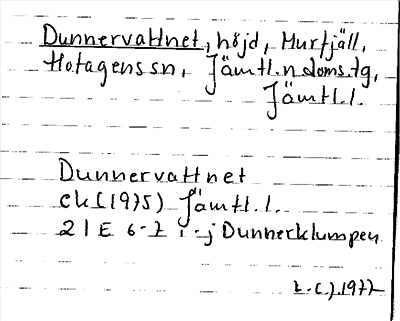 Dunnervattnet, höjd, Murfjäll,
Hotagens sn, Jämtl. n. doms.tg,
Jämtl. l.
Dunnervattnet
ek (1975) Jämtl. l.
21 E 6-7 i-j Dunnerklumpen
1977